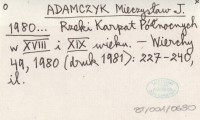 ADAMCZYK Mieczysław J.
1980... Rzeki Karpat Północnych
w XVIII i XIX wieku. — Wierchy
49, 1980 (druk 1981): 227-240,
il.
85/001/0680